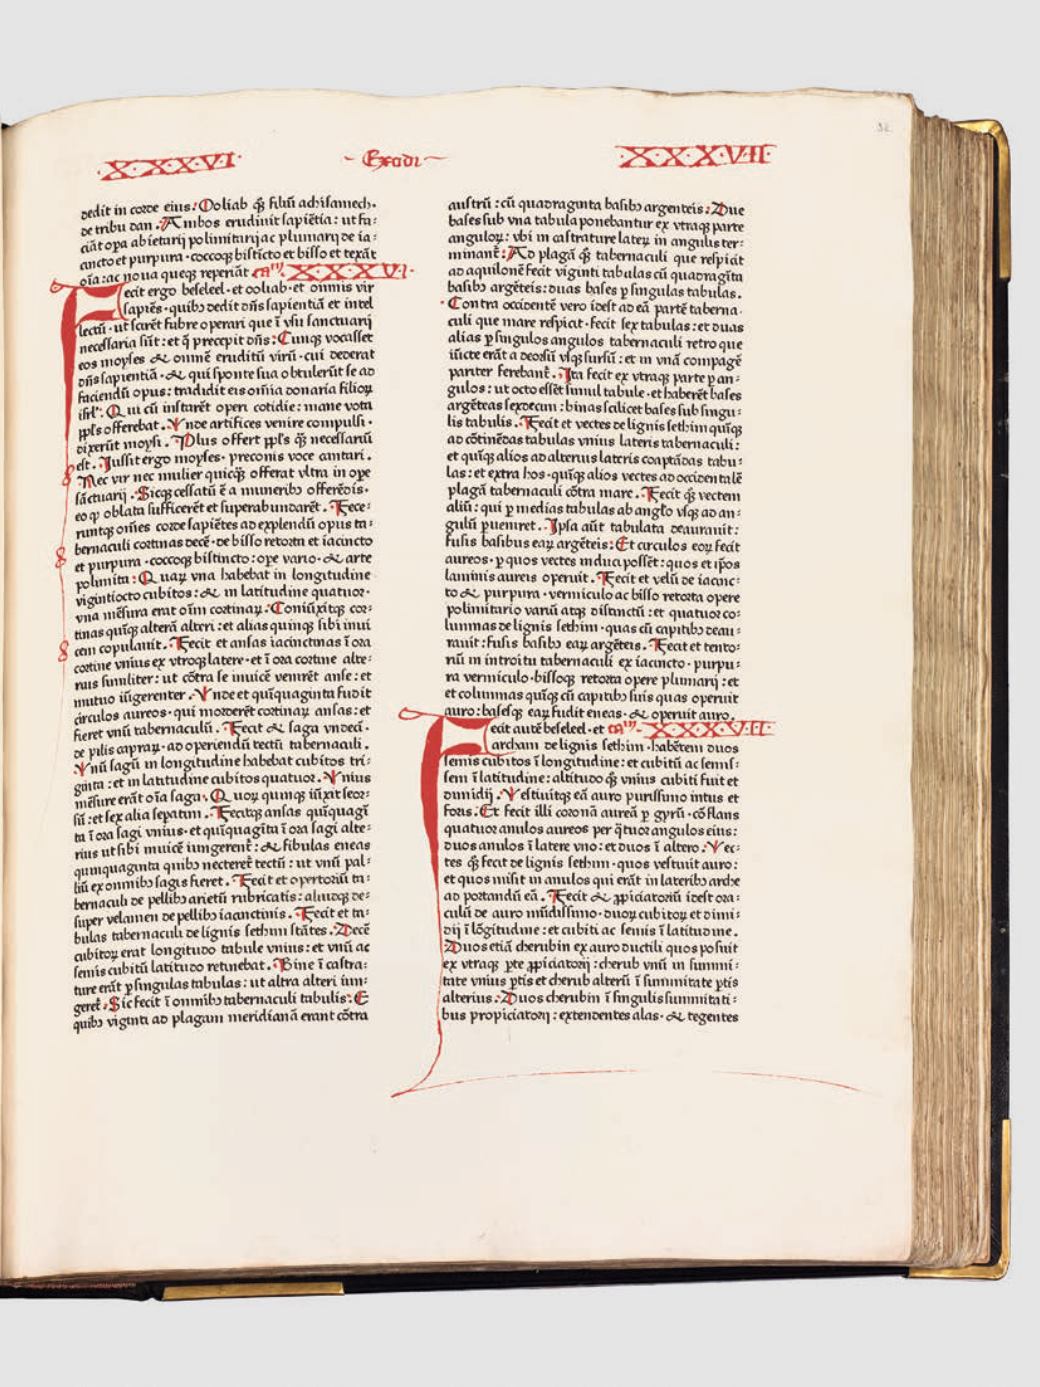 ·X·XX·V·I·
~ Exodi ~
X·X·X·V·II·
32
dedit in corde eius: Ooliab qȝ filiū achisamech.
de tribu dan. Ambos erudiuit sapiētia: ut fa:
ciāt opa abietarij polimitarij ac plumarij de ia:
cincto et purpura · coccoqȝ bistīcto et bisso et texāt
oīa: ac noua queqȝ reperiāt cam. X·X·X·V·I·
Fecit ergo beseleel · et ooliab · et omnis vir
sapiēs · quibꝫ dedit dn̄s sapientiā et intel
lectū · ut scirēt fabre operari que ī vsū sanctuarij
necessaria sūt: et q̄ precepit dn̄s: Cunqȝ vocasset
eos moyses & omnē eruditū virū · cui dederat
dn̄s sapientiā · & qui sponte sua obtulerūt se ad
faciendū opus: tradidit eis omīa donaria filioꝝ
isrl'. Qui cū instarēt operi cotidie: mane vota
ppl̄s offerebat. Vnde artifices venire compulsi ·
dixerūt moysi. Plus offert ppl̄s qȝ necessariū
est. Jussit ergo moyses · preconis voce cantari.
Nec vir nec mulier quicqȝ offerat vltra in ope
sāctuarij. Sicqȝ cessatū ē a muneribꝫ offerēdis ·
eo qꝫ oblata sufficerēt et superabundarēt. Fece:
runtqȝ om̄es corde sapiētes ad explendū opus ta:
bernaculi cortinas decē · de bisso retorta et iacincto
et purpura · coccoqȝ bistincto: ope vario · & arte
polimita: Quaꝝ vna habebat in longitudine
vigintiocto cubitos: & in latitudine quatuor ·
vna mēsura erat oīm cortinaꝝ. Coniūxitqȝ cor:
tinas quīqȝ alterā alteri: et alias quinqȝ sibi inui
cem copulauit. Fecit et ansas iacinctinas ī ora
cortine vnius ex vtroqȝ latere · et ī ora cortine alte:
rius similiter: ut cōtra se inuicē venirēt anse: et
mutuo iūgerenter. Vnde et quīquaginta fudit
circulos aureos · qui morderēt cortinaꝝ ansas: et
fieret vnū tabernaculū. Fecit & saga vndeci ·
de pilis capraꝝ · ad operiendū tectū tabernaculi.
Vnū sagū in longitudine habebat cubitos tri:
ginta: et in latitudine cubitos quatuor. Vnius
mēsure erāt oīa saga. Quoꝝ quinqȝ iūxit seor:
sū: et sex alia sepatim. Fecitqȝ ansas quīquagī
ta ī ora sagi vnius · et quīquagīta ī ora sagi alte:
rius ut sibi inuicē iungerent̄: & fibulas eneas
quinquaginta quibꝫ necteret̄ tectū: ut vnū pal:
liū ex omnibꝫ sagis fieret. Fecit et opertoriū ta:
bernaculi de pellibꝫ arietū rubricatis: aliudqȝ de:
super velamen de pellibꝫ iacanctinis. Fecit et ta:
bulas tabernaculi de lignis sethim stātes. Decē
cubitoꝝ erat longitudo tabule vnius: et vnū ac
semis cubitū latitudo retinebat. Bine ī castra:
ture erāt p singulas tabulas: ut altra alteri iun:
geret̄. Sic fecit ī omnibꝫ tabernaculi tabulis: E
quibꝫ viginti ad plagam meridianā erant cōtra
austrū: cū quadraginta basibꝫ argenteis: Due
bases sub vna tabula ponebantur ex vtraqȝ parte
anguloꝝ: vbi in castrature lateꝝ in angulis ter:
minant̄: Ad plagā qȝ tabernaculi que respicit
ad aquilonē fecit viginti tabulas cū quadragīta
basibꝫ argēteis: duas bases p singulas tabulas.
Contra occidentē vero idest ad eā partē taberna:
culi que mare respicit · fecit sex tabulas: et duas
alias p singulos angulos tabernaculi retro que
iūcte erāt a deorsū vsqȝ sursū: et in vnā compagē
pariter ferebant̄. Ita fecit ex vtraqȝ parte p an:
gulos: ut octo essēt simul tabule · et haberēt bases
argēteas sexdecim: binas scilicet bases sub singu:
lis tabulis. Fecit et vectes de lignis sethim quīqȝ
ad cōtinēdas tabulas vnius lateris tabernaculi:
et quīqȝ alios ad alterius lateris coaptādas tabu:
las: et extra hos · quīqȝ alios vectes ad occidentalē
plagā tabernaculi cōtra mare. Fecit qȝ vectem
aliū: qui p medias tabulas ab anglo vsqȝ ad an:
gulū pueniret. Ipsa aūt tabulata deaurauit:
fusis basibus eaꝝ argēteis: Et circulos eoꝝ fecit
aureos · p quos vectes induci possēt: quos et ip̄os
laminis aureis operuit. Fecit et velū de iacinc:
to & purpura · vermiculo ac bisso retorta opere
polimitario variū atqȝ distinctū: et quatuor co:
lumnas de lignis sethim · quas cū capitibꝫ deau:
rauit: fusis basibꝫ eaꝝ argēteis. Fecit et tento:
riū in introitu tabernaculi ex iacincto · purpu:
ra vermiculo · bissoqȝ retorta opere plumarij: et
et columnas quīqȝ cū capitibꝫ suis quas operuit
auro: basesqȝ eaꝝ fudit eneas · & operuit auro.
Fecit autē beseleel · et cam. X·X·X·V·II·
archam de lignis sethim · habētem duos
semis cubitos ī longitudine: et cubitū ac semis:
sem ī latitudine: altitudo qȝ vnius cubiti fuit et
dimidij. Vestiuitqȝ eā auro purissimo intus et
foris. Et fecit illi coronā aureā p gyrū · cōflans
quatuor anulos aureos per q̄tuor angulos eius:
duos anulos ī latere vno: et duos ī altero: Vec:
tes qȝ fecit de lignis sethim · quos vestiuit auro:
et quos misit in anulos qui erāt in lateribꝫ arche
ad portandū eā. Fecit & ꝓpiciatoriū idest ora:
culū de auro mūdissimo · duoꝝ cubitoꝝ et dimi:
dij ī lōgitudine: et cubiti ac semis ī latitudine.
Duos etiā cherubin ex auro ductili quos posuit
ex vtraqȝ pte ꝓpiciatorij: cherub vnū in summi:
tate vnius ptis et cherub alterū ī summitate ptis
alterius: Duos cherubin ī singulis summitati:
bus propiciatorij: extendentes alas · & tegentes